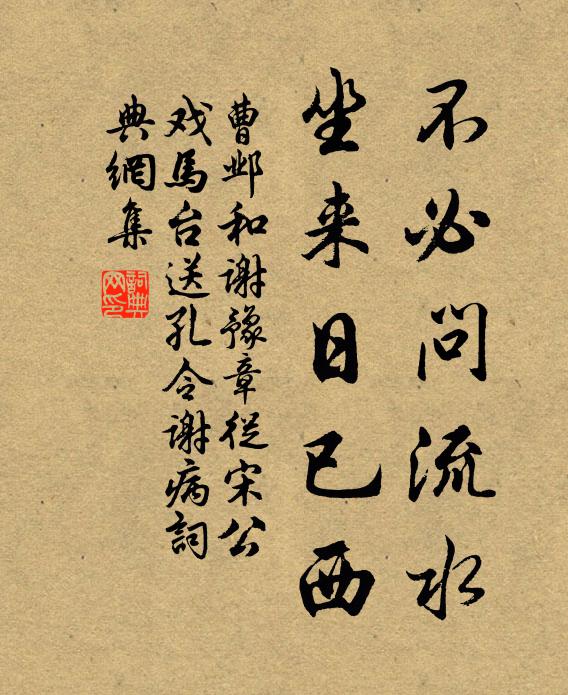 不必问流水
坐来日已西
曹邺和谢豫章從宋公
戏馬台送孔令谢病詞
典網集
詞典网印